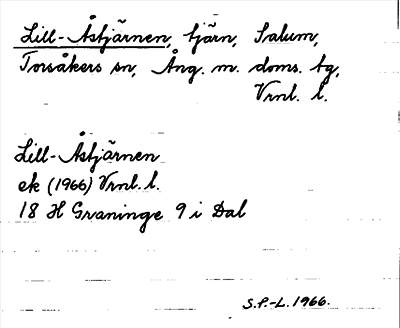 Lill-Åstjärnen, tjärn, Salum,
Torsåkers sn, Ång. m. doms. tg,
Vrnl. l.
Lill-Åstjärnen
ek (1966) Vrnl. l.
18 H Graninge 9 i Dal
S.P.-L. 1966.